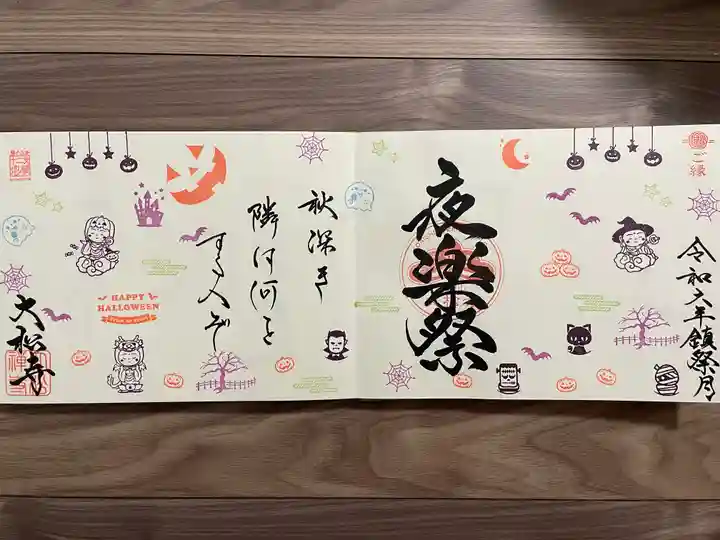 ご縁
令和六年鎮祭月
夜楽祭
秋深き
隣は何を
する人ぞ
HAPPY
HALLOWEEN
大松寺